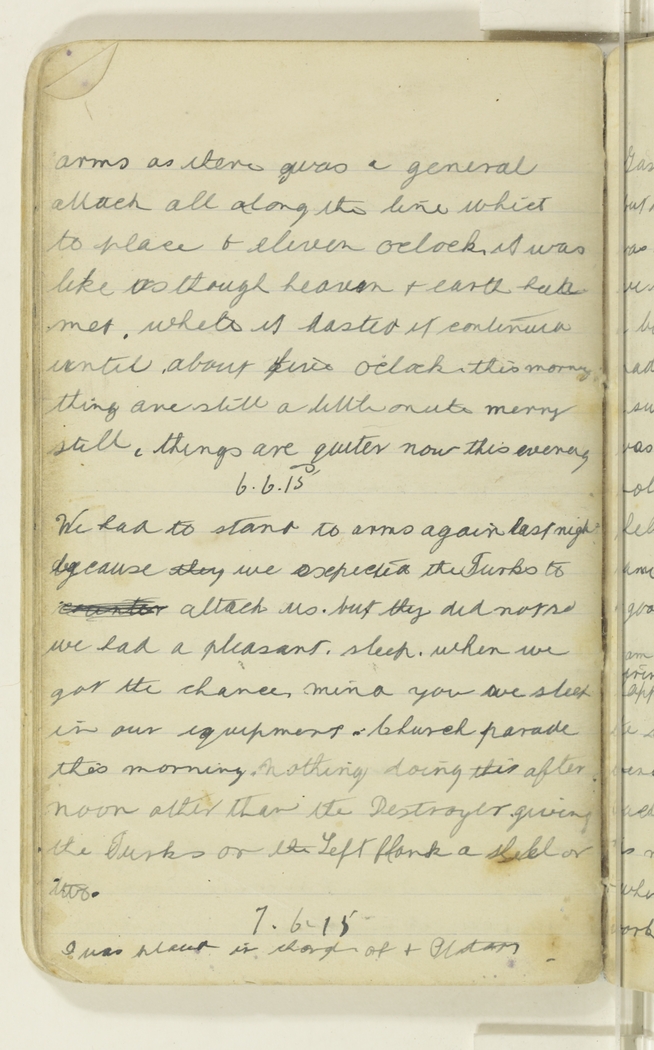 arms as there was a general
attack all along the line which
to place & eleven oclock. it was
like as though heaven & earth had
met. whele it lasted it continued
until about five oclock this morng
thing are still a little onute merry
still, things are quiter now this evening
6.6.15
We had to stand to arms again last nigh
because they we expected the Turks to
counter attack us. but they did not so
we had a pleasant. sleep. when we
got the chance, mind you we sleep
in our iquipment. Church parade
this morning. Nothing doing this after
noon other than the Destroyer giving
the Turks or the Left flank a shell or
two.
7.6.15
I was in of &